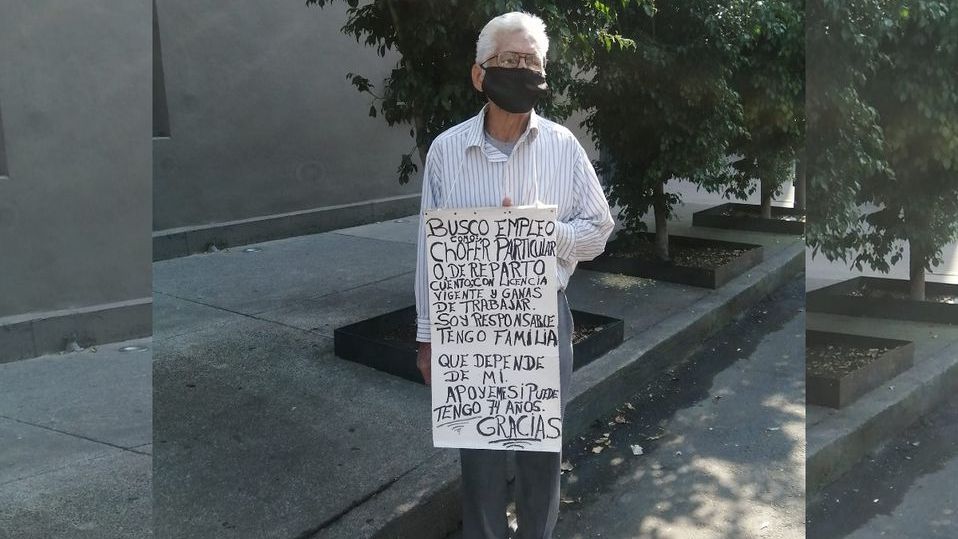 BUSCO EMPLEO
COMO:
CHOFER PARTICULAR
O. DE REPARTO
CUENTO: CON LICENCIA
VIGENTE Y GANAS
DE TRABAJAR.
SOY RESPONSABLE
TENGO FAMILIA
QUE DEPENDE
DE MI.
APOYEME SI PUEDE
TENGO 74 AÑOS.
GRACIAS